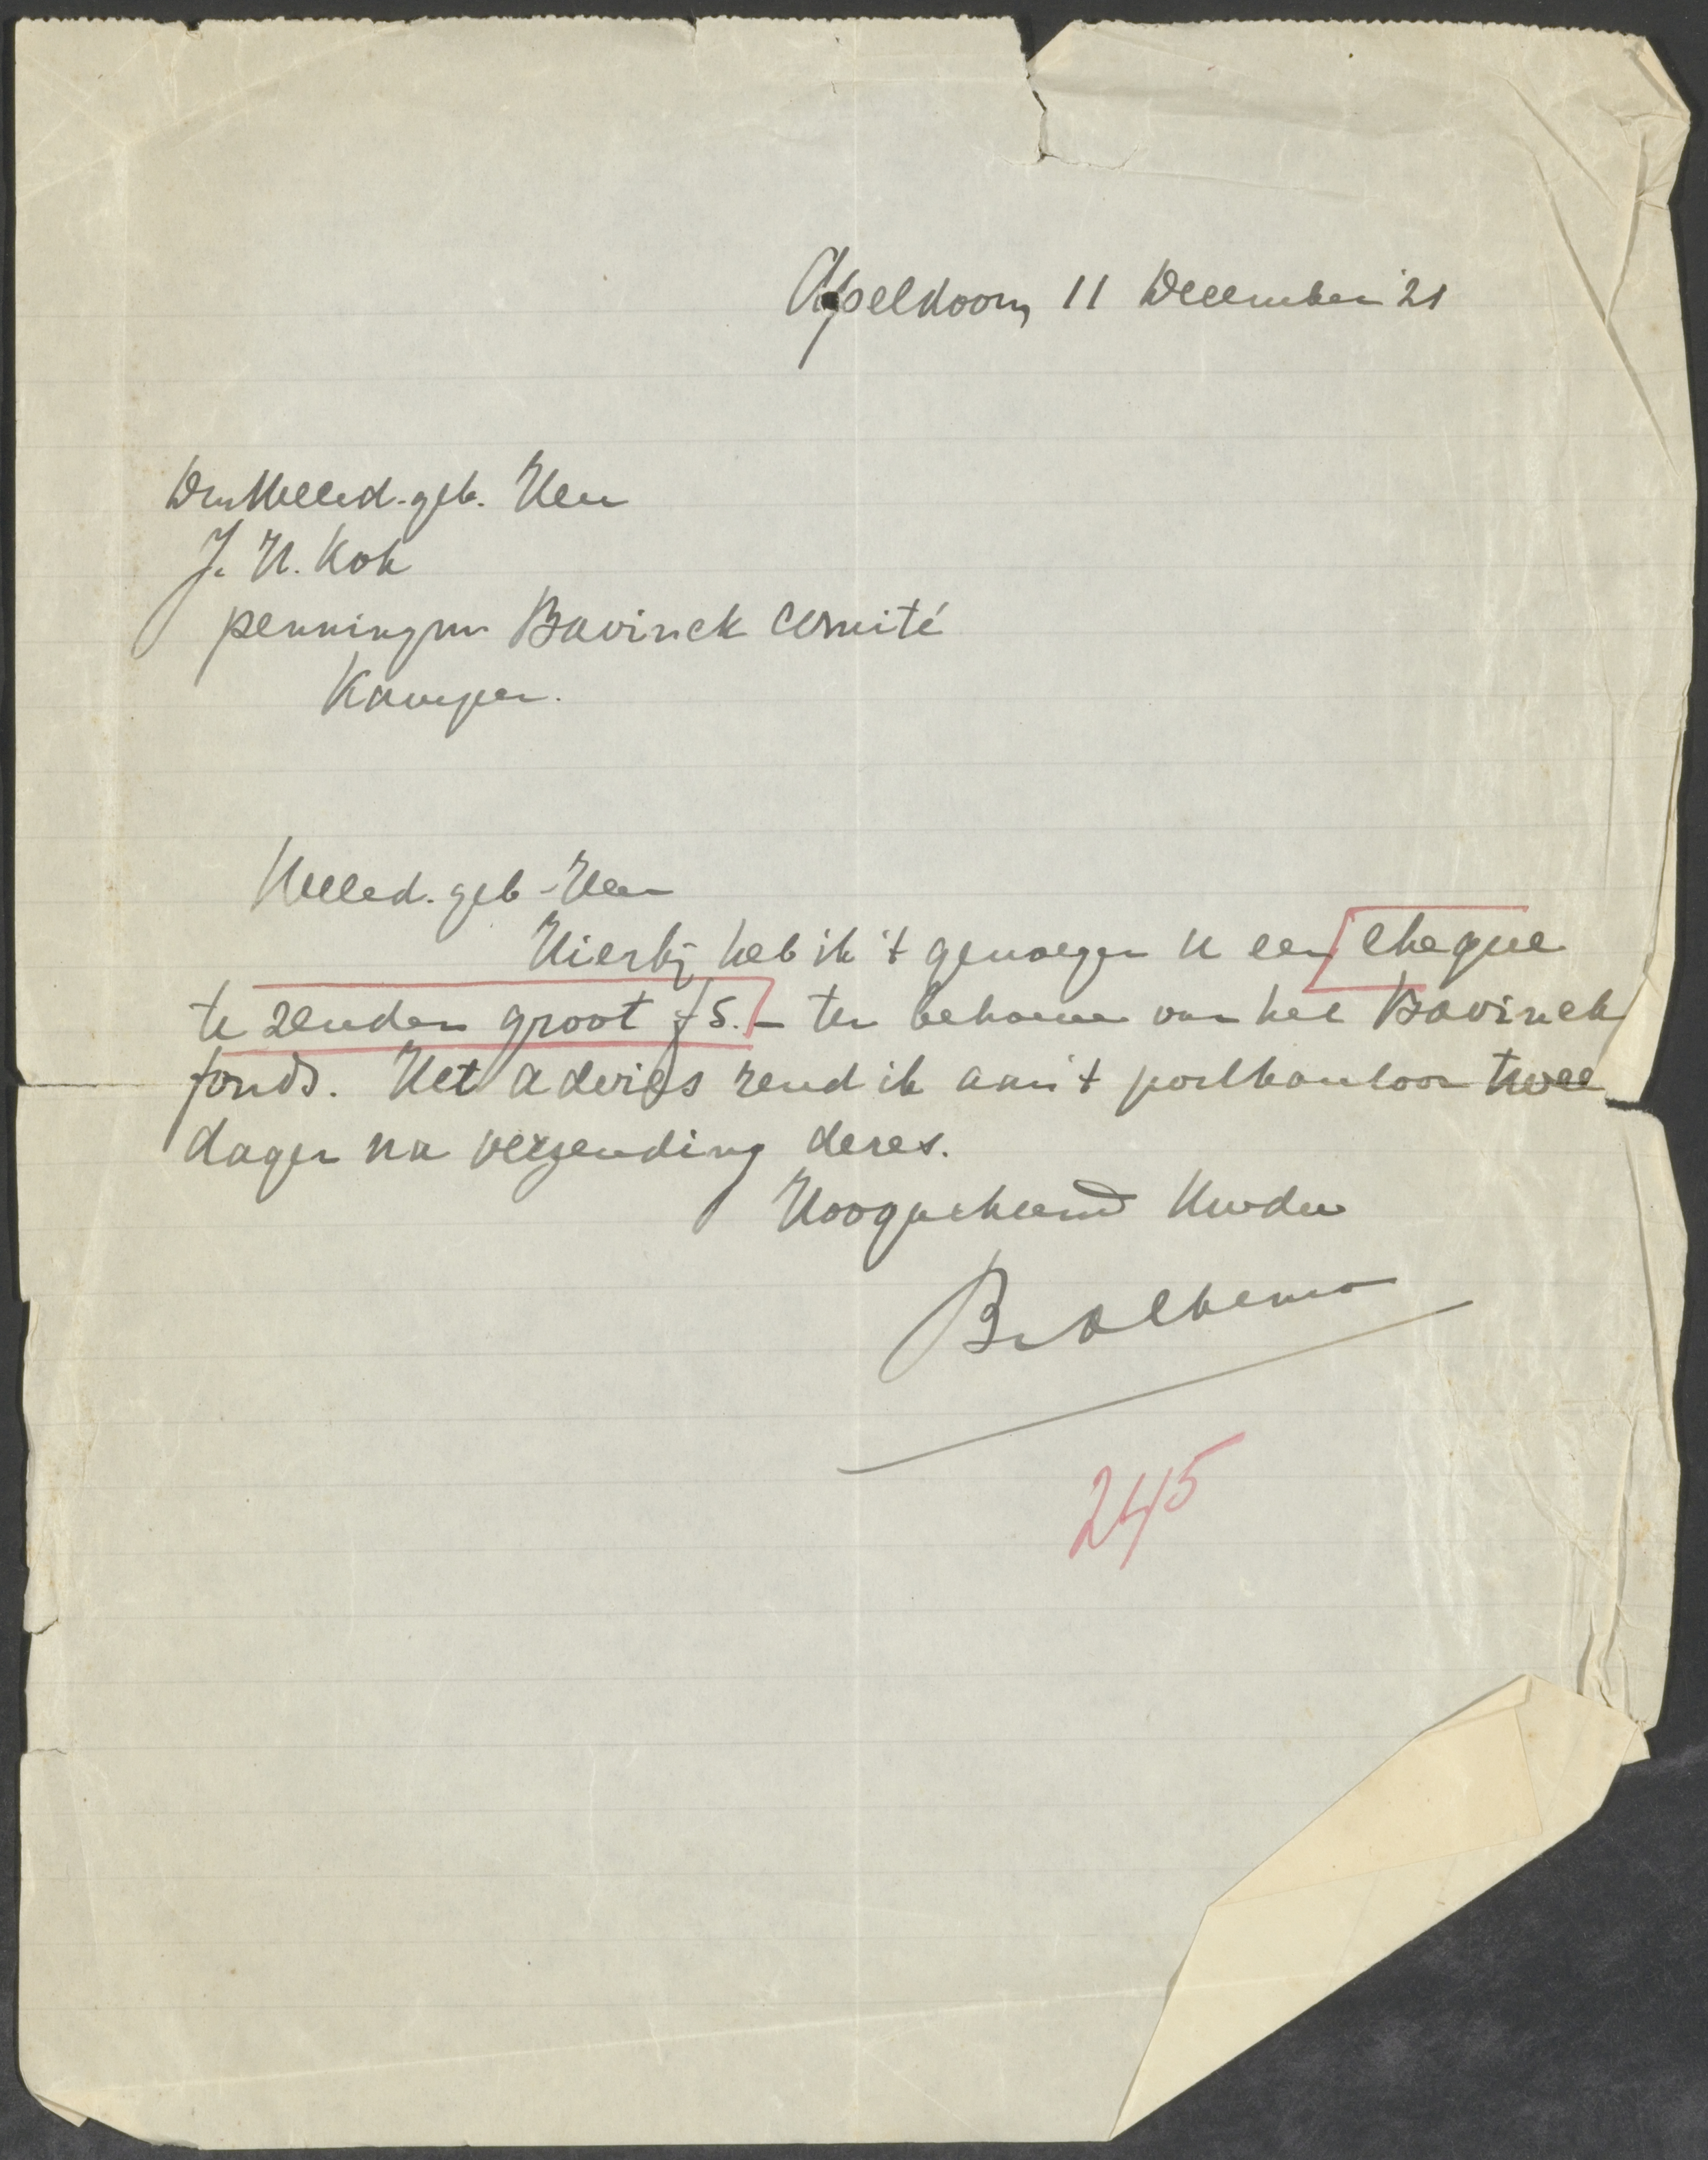 Apeldoorn, 11 December '21
Den Weled. geb. Heer
J. H. Kok
penningm Bavinck Comité
Kampen.
Weled. geb. Heer
Hierbij heb ik 't genoegen U een cheque
te zenden groot f 5.- ten behoeve van het Bavinck
fonds. Het advies zend ik aan 't postkantoor twee
dagen na verzending dezes.
Hoogachtend Uwdw
245